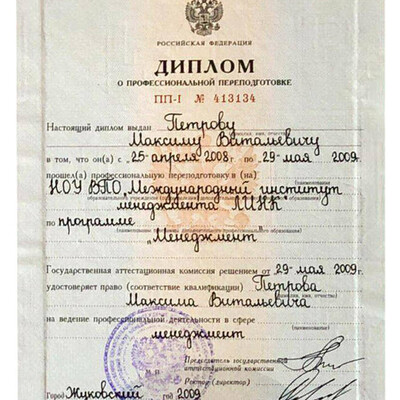 РОССИЙСКАЯ ФЕДЕРАЦИЯ
ДИПЛОМ
О ПРОФЕССИОНАЛЬНОЙ ПЕРЕПОДГОТОВКЕ
ПП-I № 413134
Настоящий диплом выдан Петрову
(фамилия, имя, отчество)
Максиму Витальевичу
в том, что он(а) с „25“ апреля 2008 г. по „29“ мая 2009 г.
прошел(а) профессиональную переподготовку в (на)
(наименование
НОУ ВПО „Международный институт
образовательного учреждения
менеджмента ЛИНК“
по программе
(наименование программы
„Менеджмент“
Государственная аттестационная комиссия решением от „29“ мая 2009 г.
удостоверяет право (соответствие квалификации) Петрова
(фамилия, имя, отчество)
Максима Витальевича
на ведение профессиональной деятельности в сфере
менеджмент
Председатель государственной
аттестационной комиссии
М П
Ректор (директор)
Город Жуковский год 2009